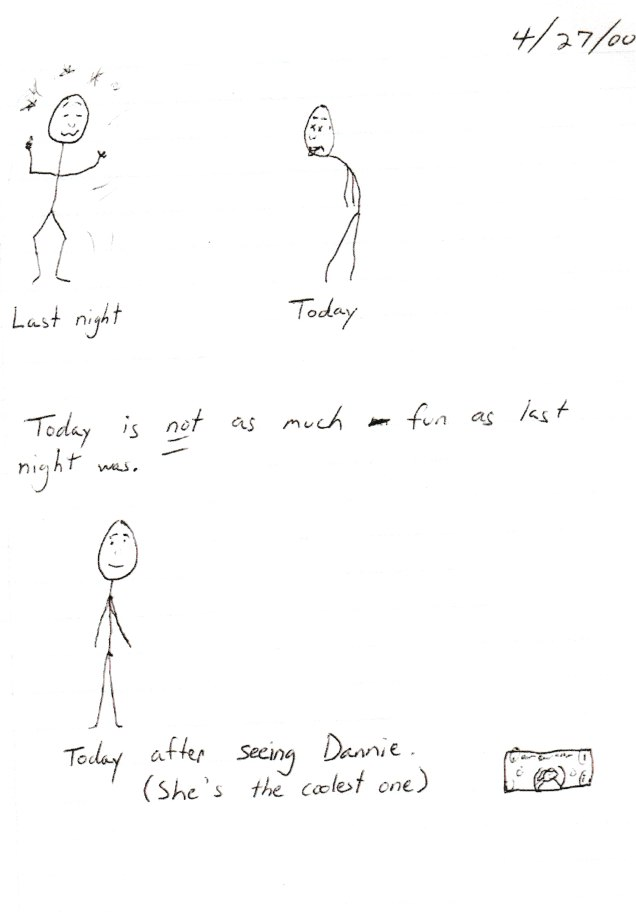 4/27/00
Last night
Today
Today is not as much fun as last
night was.
Today after seeing Dannie.
(She's the coolest one)